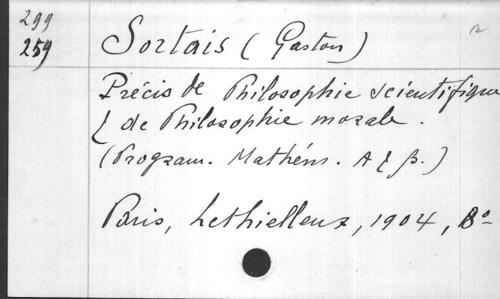 299
259
Sortais (Gaston)
Précis de Philosophie scientifique
& de Philosophie morale.
(Program. Mathém. A & B.)
Paris, Lethielleux, 1904, 8º